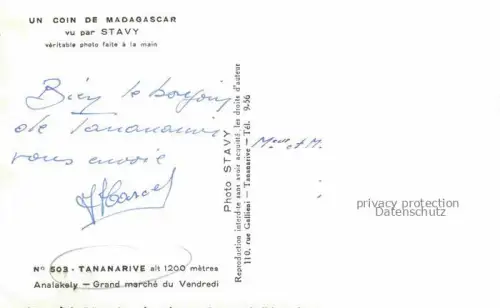 UN COIN DE MADAGASCAR
vu par STAVY
véritable photo faite à la main
Bien le bonjour
de Tananarive
vous envoie
Mme et M.
Photo STAVY
Reproduction interdite sans avoir acquitté les droits d'auteur
110, rue Gallieni - Tananarive - Tél. 9-56
privacy protection
Datenschutz
N° 503 - TANANARIVE alt 1200 mètres
Analakely - Grand marché du Vendredi